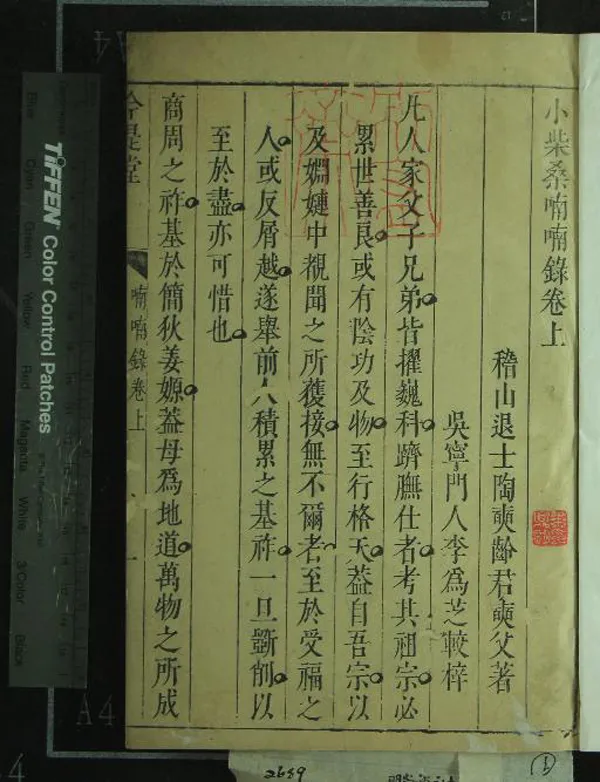 小柴桑喃喃錄卷上
稽山退士陶奭齡君奭父著
吳寧門人李為芝較梓
凡人家父子兄弟皆擢巍科躋膴仕者考其祖宗必
累世善良或有陰功及物至行格天葢自吾宗以
及婣娗中覩聞之所獲接無不爾者至於受福之
人或反屑越遂舉前人積累之基祚一旦斵削以
至於盡亦可惜也
商周之祚基於簡狄姜嫄葢母爲地道萬物之所成
今是堂
喃喃錄卷上
一
TIFFEN Color Control Patches
Blue
Cyan
Green
Yellow
Red
Magenta
White
3/Color
Black
A4
A4
4
2689